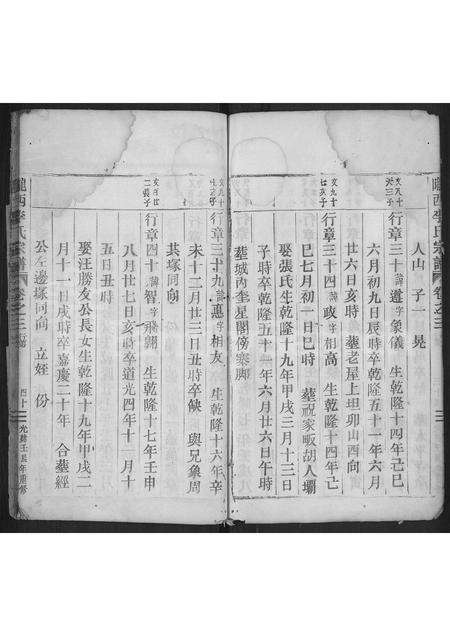 隴西李氏宗譜 卷之三
人山 子一 晃
行章三十 諱道字象儀 生乾隆十四年己巳
六月初九日辰時卒乾隆五十一年六月
廿六日亥時 葬老屋上坦卯山酉向
行章三十四 諱政字相高 生乾隆十四年己
巳七月初一日巳時 葬祝家畈胡人壩
娶張氏生乾隆十九年甲戌三月十三日
子時卒乾隆五十一年六月廿六日午時
葬城內奎星閣傍寨脚
行章三十九 諱惠字相友 生乾隆十六年辛
未十二月廿三日丑時卒缺 與兄象周
共塚同向
行章四十 諱智字飛翱 生乾隆十七年壬申
八月廿七日亥時卒道光四年十一月十
五日時
娶汪勝友公長女生乾隆十九年甲戌二
月十一日戌時卒嘉慶二十年 合葬經
公左邊塚同向 立姪 份
隴西李氏宗譜 卷之三
四十 光緒壬辰年重修